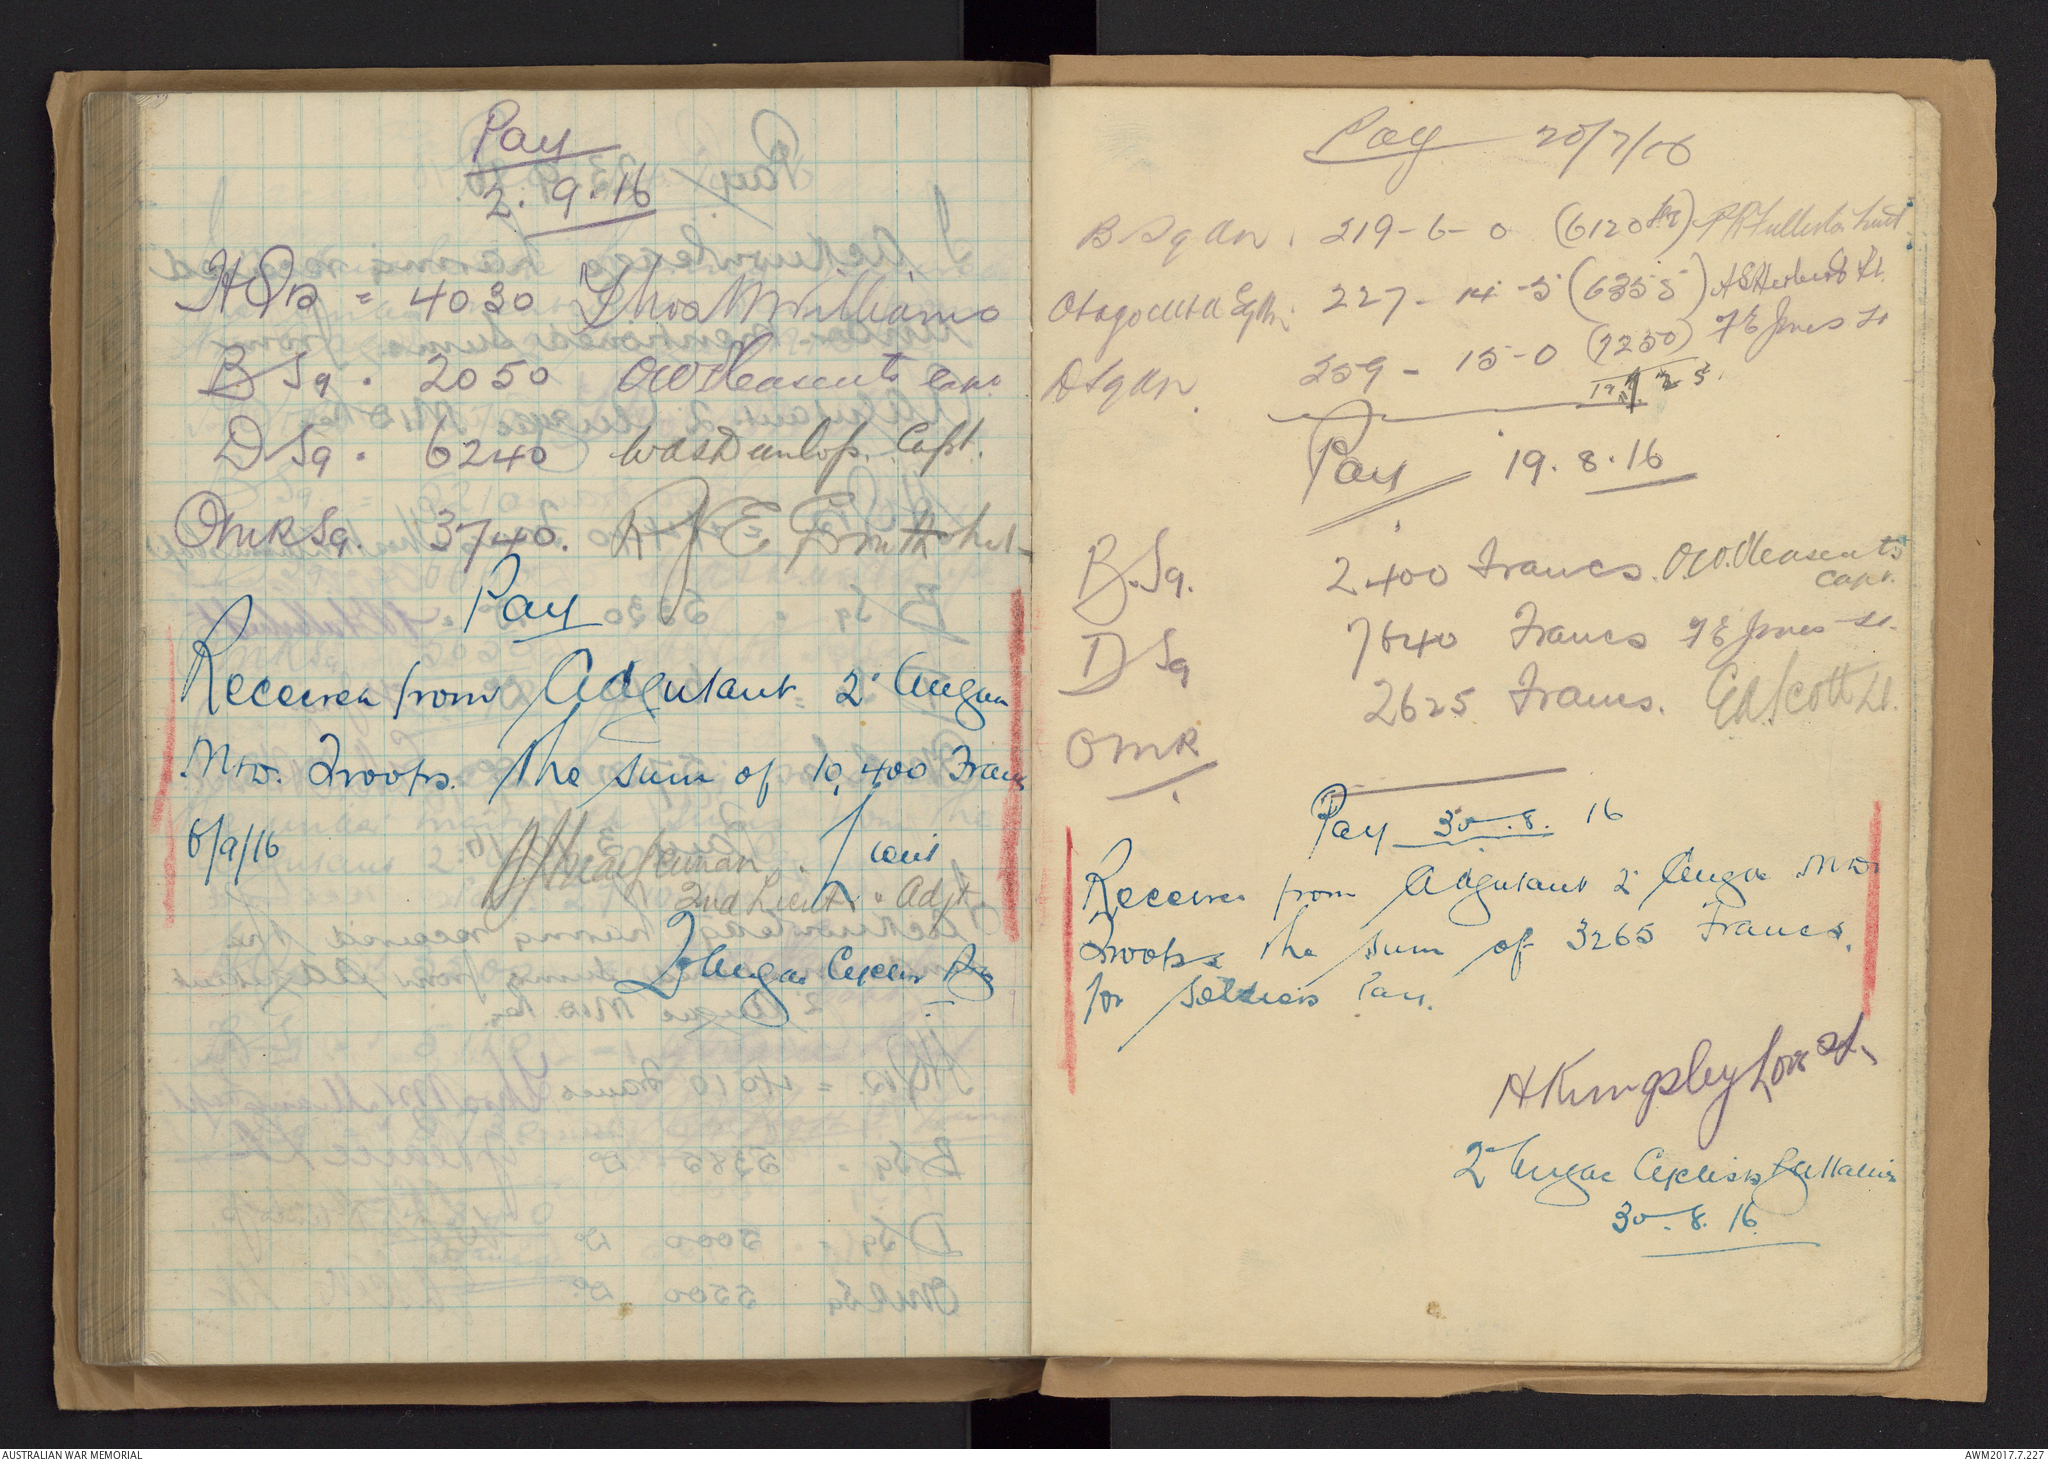 Pay
2. 9. 16
HQrs = 4030 Thos M Williams
B Sq. 2050 O W Pleasents Capt.
D Sq. 6240 W A S Dunlop. Capt.
OMR Sq. 3740. R J E Smith
Pay
Received from Adjutant 2 Anzac
Mtd. Troops. The sum of 10,400 Francs
6/9/16
2nd Lieut. Adjt
2 Anzac Cyclist
Pay 20/7/16
B Sqdn. 219-6-0 (6120 Fr)
Otago Mtd Sqdn. 227-14-5 (6355) A S Herbert Lt.
D Sqdn. 259-15-0 (7250) F E Jones Lt
Pay 19.8.16
B. Sq. 2400 Francs. O W Pleasents
Capt.
D Sq 7640 Francs F E Jones Lt.
OMR 2625 Francs. E A Scott Lt.
Pay 30.8.16
Received from Adjutant 2 Anzac Mtd
Troops the sum of 3265 Francs.
for Soldiers Pay.
H Kingsley Love Lt.
2 Anzac Cyclists Battalion
30.8.16
AUSTRALIAN WAR MEMORIAL
AWM2017.7.227